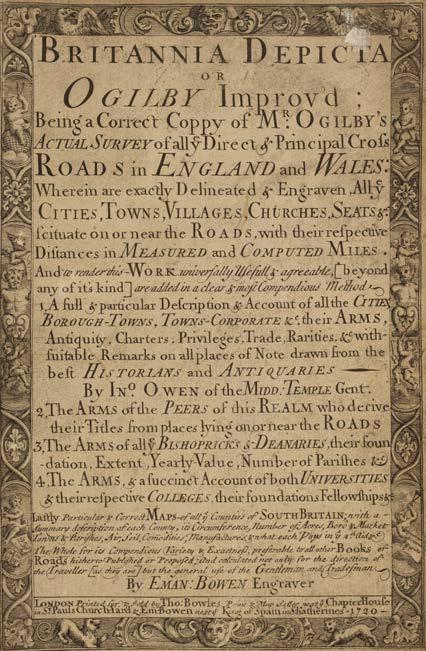 BRITANNIA DEPICTA
OR
OGILBY Improv'd;
Being a Correct Coppy of Mr. OGILBY'S
ACTUAL SURVEY of all ye Direct & Principal Cross
ROADS in ENGLAND and WALES:
Wherein are exactly Delineated & Engraven, All ye
CITIES, TOWNS, VILLAGES, CHURCHES, SEATS &c.
scituate on or near the ROADS, with their respective
Distances in MEASURED and COMPUTED MILES.
And to render this WORK universally Usefull & agreeable, [beyond
any of it's kind] are added in a clear & most Compendious Method
1, A full & particular Description & Account of all the CITIES,
BOROUGH-TOWNS, TOWNS-CORPORATE &c. their ARMS,
Antiquity, Charters, Privileges, Trade, Rarities, &c. with
suitable Remarks on all places of Note drawn from the
best HISTORIANS and ANTIQUARIES
By Ino. OWEN of the MIDD. TEMPLE Gent.
2, The ARMS of the PEERS of this REALM who derive
their Titles from places lying on, or near the ROADS
3, The ARMS of all ye BISHOPRICKS & DEANARIES, their foun
-dation, Extent, Yearly Value, Number of Parishes &c.
4. The ARMS, & a succinct Account of both UNIVERSITIES
& their respective COLLEGES, their foundations Fellowships &c
Lastly Particular & Correct MAPS of all ye Counties of SOUTH BRITAIN; with a
Summary description of each County, its Circumference, Number of Acres, Boro' & Market
Towns & Parishes, Air, Soil, Comodities, Manufactures, & what each Pays in ye 4s. Aid &c
The Whole for its Compendious Variety & Exactness, preferable to all other Books of
Roads hitherto Published or Proposed; And calculated not only for the direction of
the Traveller [as they are] but the general use of the Gentleman and Tradesman.
By EMAN: BOWEN Engraver
LONDON Printed for, & Sold by Tho: Bowles Print & Map Seller next ye Chapter House
in St. Pauls Church Yard & Em: Bowen near ye King of Spain in St. Katherines 1720